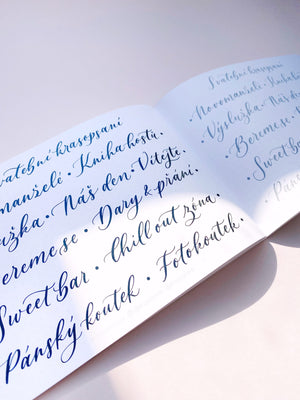 Svatební krasopsaní
Novomanželé · Kniha hostů.
Výslužka · Náš den · Vítejte.
Bereme se · Dary & přání.
Sweet bar · Chill out zóna.
Pánský koutek · Fotokoutek.
Svatební krasopsaní
· Novomanželé · Kniha
· Výslužka · Náš den
· Bereme se ·
· Sweet bar
· Pánský